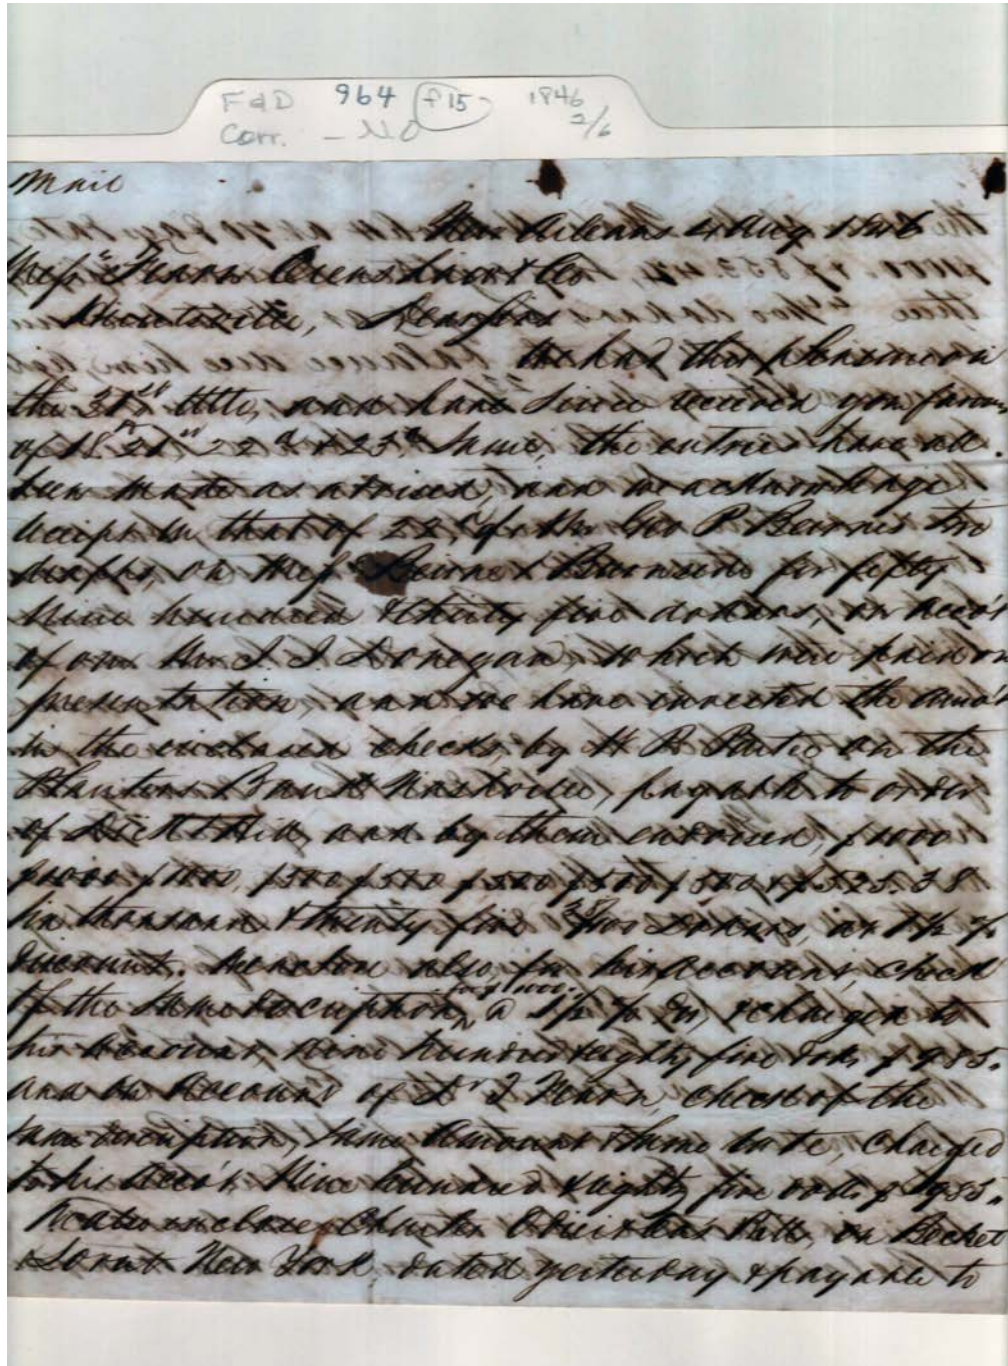 F&D 964 f15 1846
Corr. - N.O 2/6
Mail
New Orleans 4 Aug 1846
Mess Fearn & Co
Huntsville, Dear Sirs
We had this pleasure on
the 31st Ulto, and have since received your favors
of 18th 21st 22d & 23d June, the entries have all
been made as advised, and we acknowledge
receipt in that of 22d, of Mr Geo P Beirnes two
drafts, on Mess Beirne & Burnside for fifty
nine hundred & thirty five dollars, on acct
of our Mr J. J. Donegan, which were paid on
presentation, and we have invested the amot
in the enclosed checks, by H R on the
Planters Bank Nashville, payable to order
of Dick & Hill, and by them endorsed, $1000
$1000 $1000, $500 $500 $500 $500 $500 & $525.38
Six thousand & twenty five 38/100 Dollars, at 1½ %
discount. We enclose also, for his account, check
of the same description, for $1000. @ 1½ % dis, & charged to
his account, nine hundred & eighty five dols, $985.
and on Account of Dr T Fearn, check of the
same description, same amount & same rate, charged
to his acct, Nine hundred & eighty five dolls $985.
We also enclose Bill, on
New York dated yesterday & payable to